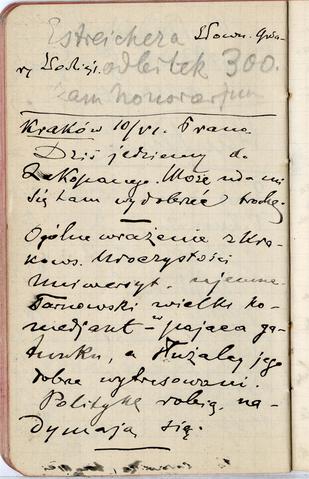 Estreichera Słown. Gwa-
ry Łodzi.
odbitek 300.
Zam honorarjum
Kraków 10/VI. Rano.
Dziś jedziemy do
Zakopanego. Może uda mi
się tam wydobrzeć trochę.
Ogólne wrażenie z Kra-
kows. Uroczystości
Uniwersyt. ujemne.
Tarnowski wielki ko-
medjant - w pajaca ga-
tunku, a służalcy jego
dobrze wytresowani.
Politykę robią, na-
dymają się.